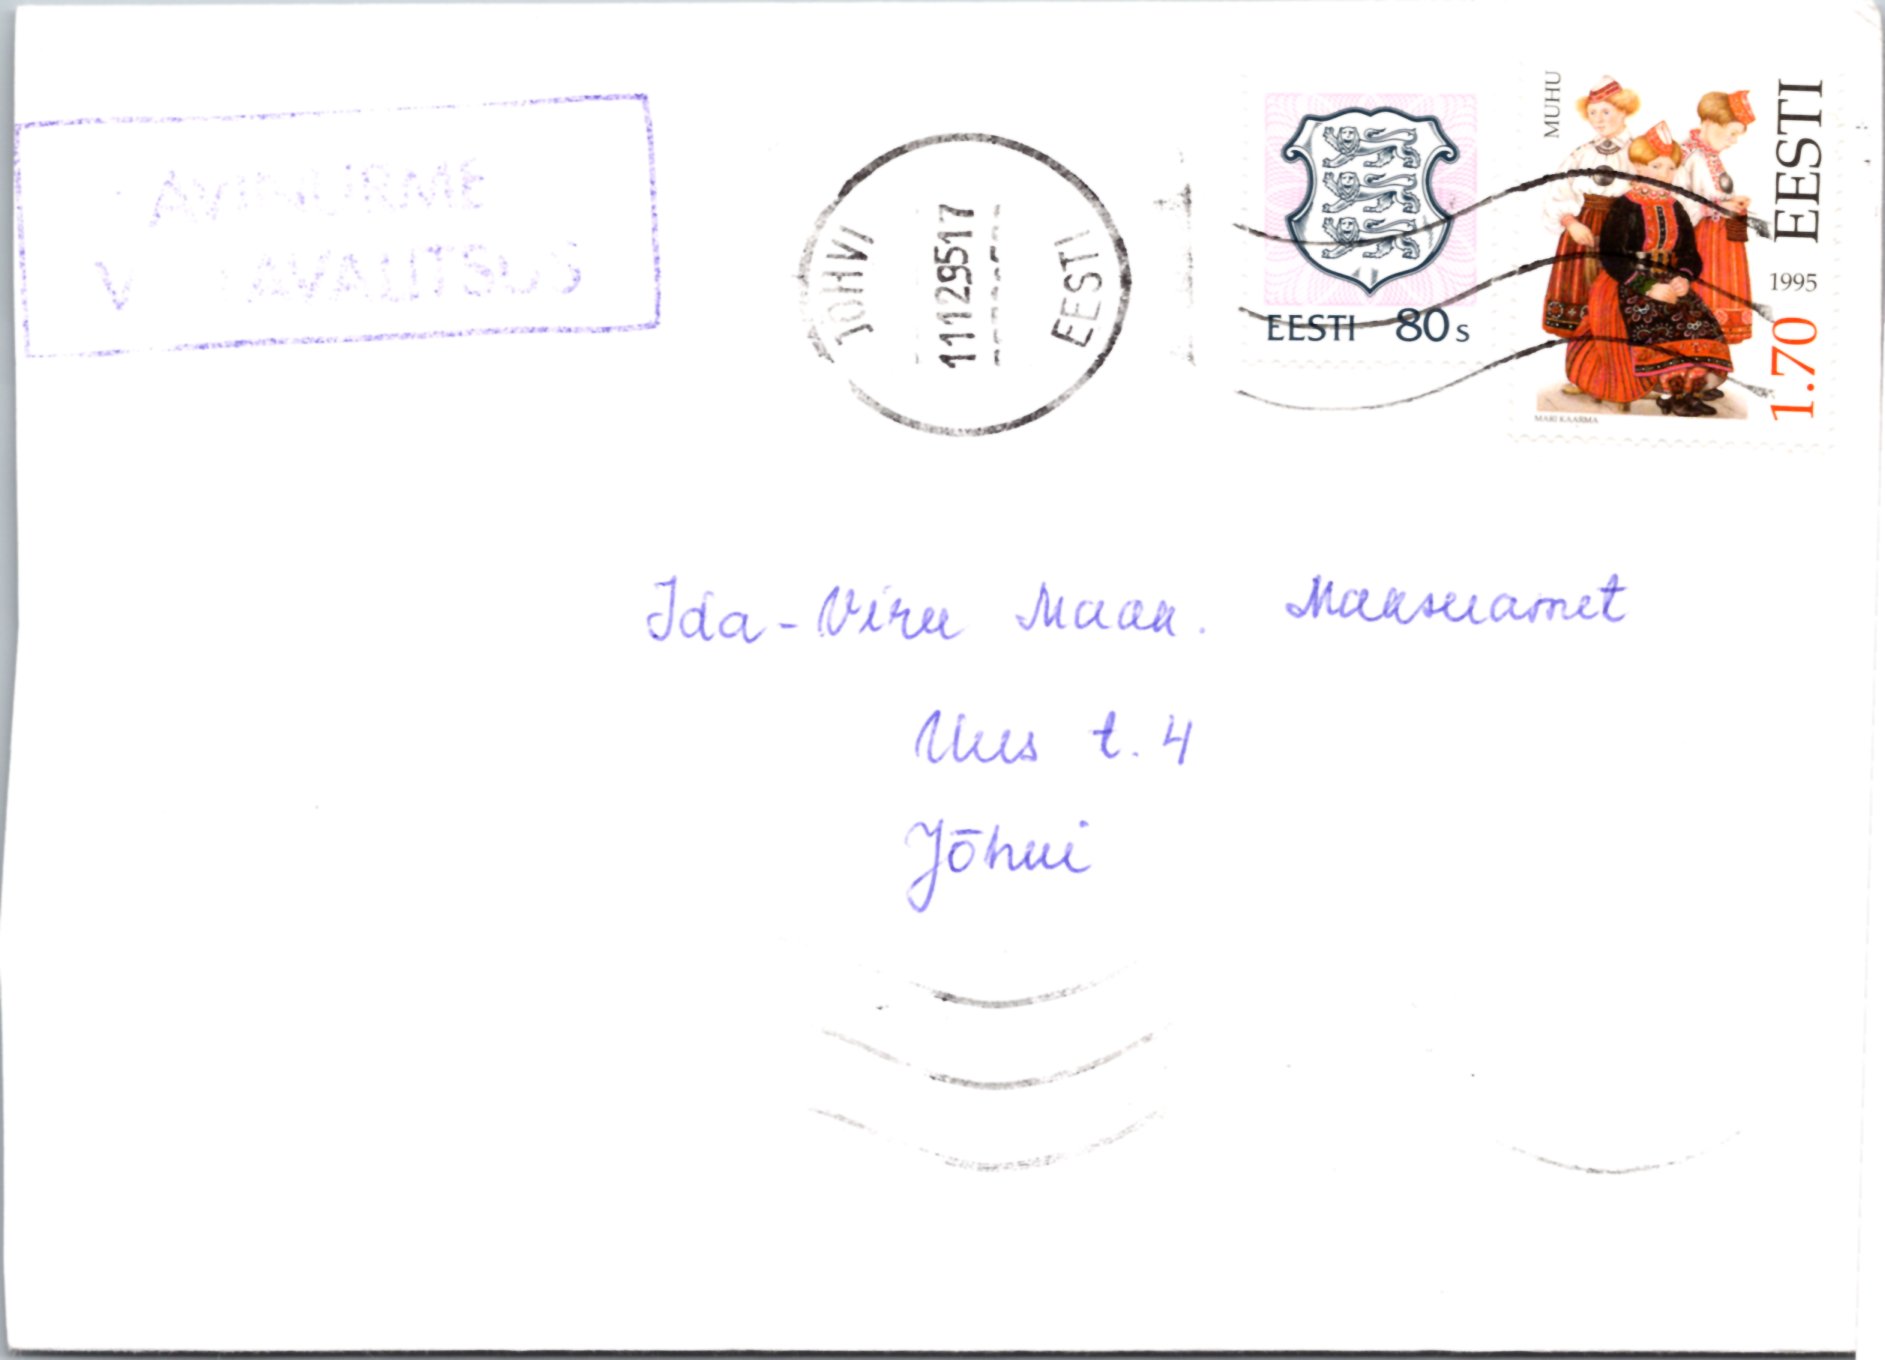 AVINURME
V AVALITSUS
JÕHVI
11 12 95 17
EESTI
EESTI 80s
MUHU
EESTI
1995
1.70
MARI KAARMA
Ida-Viru Maak. Maksuamet
Uus t. 4
Jõhvi